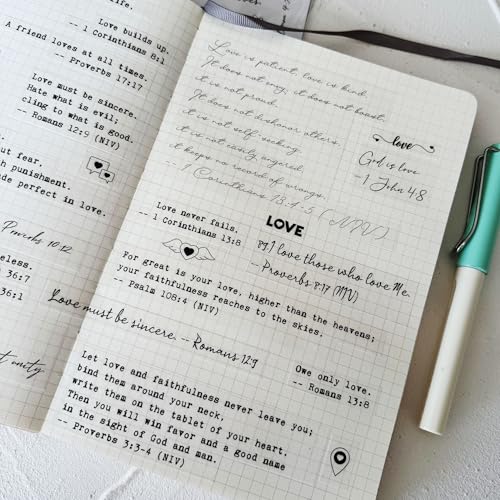 Love builds up.
-- 1 Corinthians 8:1
A friend loves at all times.
-- Proverbs 17:17
Love must be sincere.
Hate what is evil;
cling to what is good.
-- Romans 12:9 (NIV)
out fear.
punishment.
de perfect in love.
Proverbs 10:12
eless.
36:7
36:1
t unity
Love is patient, love is kind.
It does not envy, it does not boast,
it is not proud.
It does not dishonor others,
it is not self-seeking,
it is not easily angered,
it keeps no record of wrongs.
-- 1 Corinthians 13:4-5 (NIV)
love
God is love
-1 John 4:8
Love never fails.
-- 1 Corinthians 13:8
LOVE
I love those who love Me.
-- Proverbs 8:17 (NIV)
For great is your love, higher than the heavens;
your faithfulness reaches to the skies.
-- Psalm 108:4 (NIV)
Love must be sincere. -- Romans 12:9
Owe only love.
-- Romans 13:8
Let love and faithfulness never leave you;
bind them around your neck,
write them on the tablet of your heart.
Then you will win favor and a good name
in the sight of God and man.
-- Proverbs 3:3-4 (NIV)